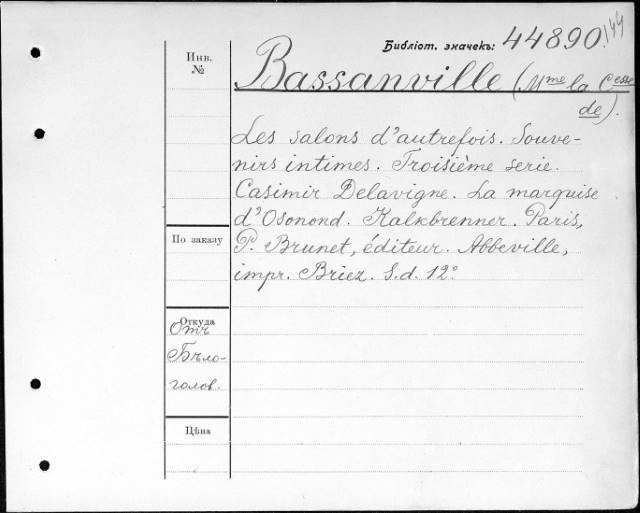 Библіот. значекъ: 44890.
144
Инв.
№
Bassanville (Mme la Cesse
de).
Les salons d'autrefois. Souve-
nirs intimes. Troisième serie.
Casimir Delavigne. La marquise
d'Osonond. Kalkbrenner. Paris,
По заказу
P. Brunet, éditeur. Abbeville,
impr. Briez. S.d. 12°
Откуда
Отъ
Бѣло-
голов.
Цѣна